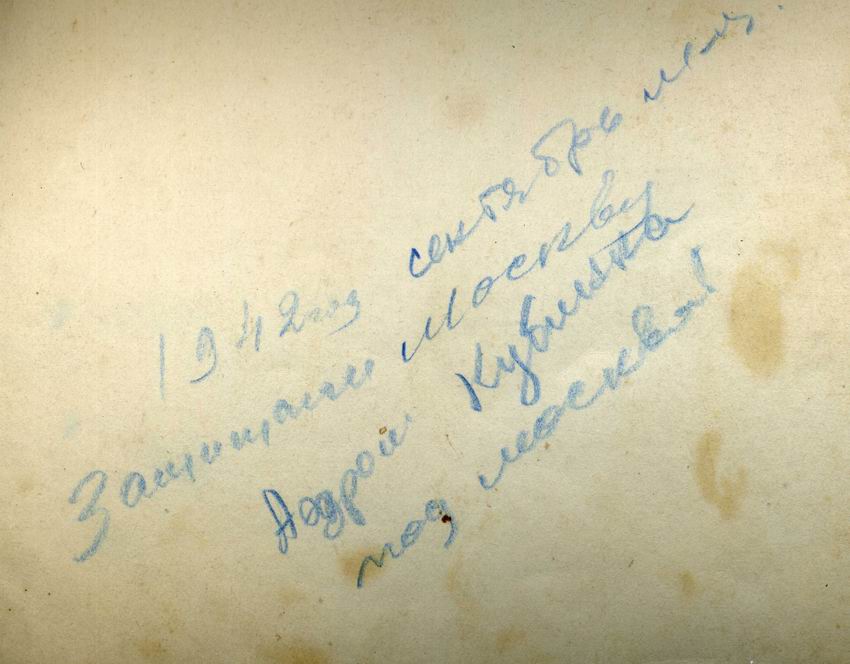 1942 год сентябрь м-ц.
Защищали Москву
Аэдром Кубинка
под москвой